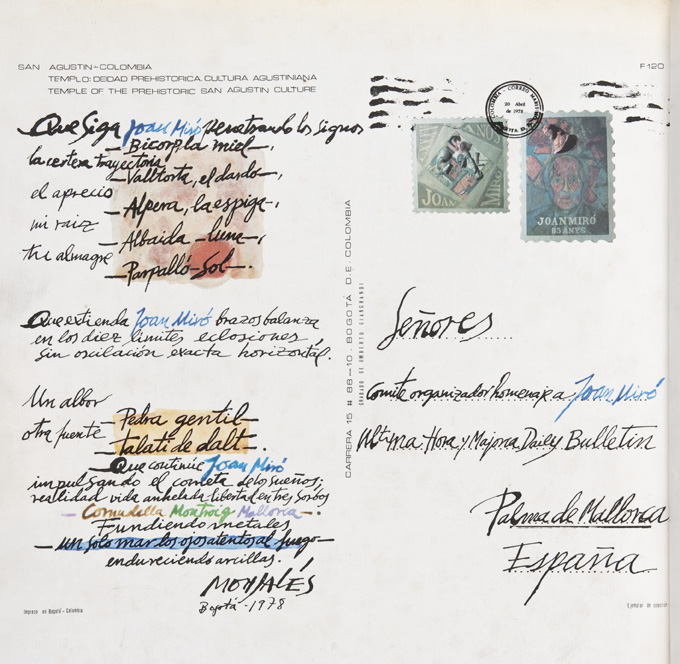 SAN AGUSTIN-COLOMBIA
TEMPLO: DEIDAD PREHISTORICA, CULTURA AGUSTINIANA
TEMPLE OF THE PREHISTORIC SAN AGUSTIN CULTURE
F120
Que Siga Joan Miró penetrando los signos
—Bicorp, la miel—,
la certera trayectoria
—Valltorta, el dardo—,
el aprecio
—Alpera, la espiga—,
mi raiz
—Albaida—luna—,
tu almagre
—Parpalló—Sol—.
Que extienda Joan Miró brazos balanza
en los diez limites eclosiones
sin oscilación exacta horizontal.
Un albor
—Pedra gentil—
otra fuente
—talatí de dalt—.
Que continúe Joan Miró
impulsando el cometa de los sueños;
realidad vida anhelada-libertad en tres sorbos
—Cornudella Montroig Mallorca—.
Fundiendo metales
—un solo mar los ojos atentos al fuego—
endureciendo arcillas.
MONJALÉS
Bogotá-1978
Impreso en Bogotá - Colombia
CARRERA 15 # 88-10. BOGOTA D.E. COLOMBIA
GRABADO DE UMBERTO GIANGRANDI
COLOMBIA - CORREO
20 Abril
de 1978
JOAN MIRÓ
JOAN MIRÓ
85 ANYS
Señores
Comite organizador homenaje a Joan Miró
Ultima Hora y Majorca Daily Bulletin
Palma de Mallorca
España
Ejemplar de